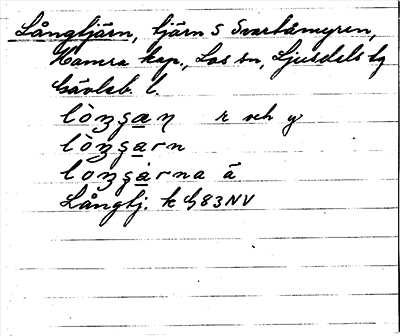 Långtjärn, tjärn S Svartåmyren,
Hamra kap., Los sn, Ljusdels tg
Gävleb. l.
lòŋʒʂa̲ŋ r och y
lòŋʒʂa̲rn
loŋʒʂa̲rna ä
Långtj. k G83NV